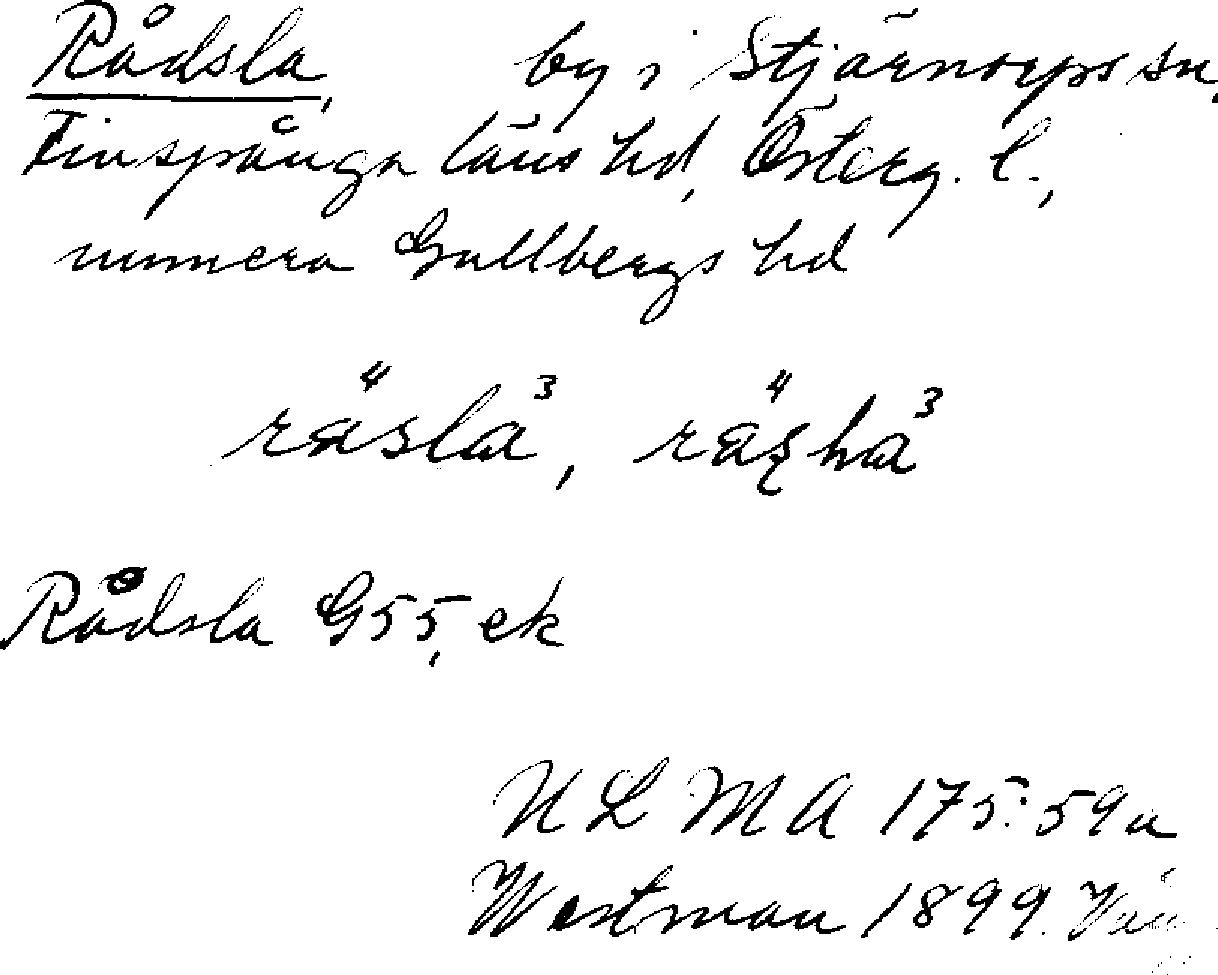 Rådsla, by i Stjärnorps sn,
Finspånga läns hd, Österg. l.,
numera Gullbergs hd
Rådsla G55, ek
ULMA 175:59a
Westman 1899.